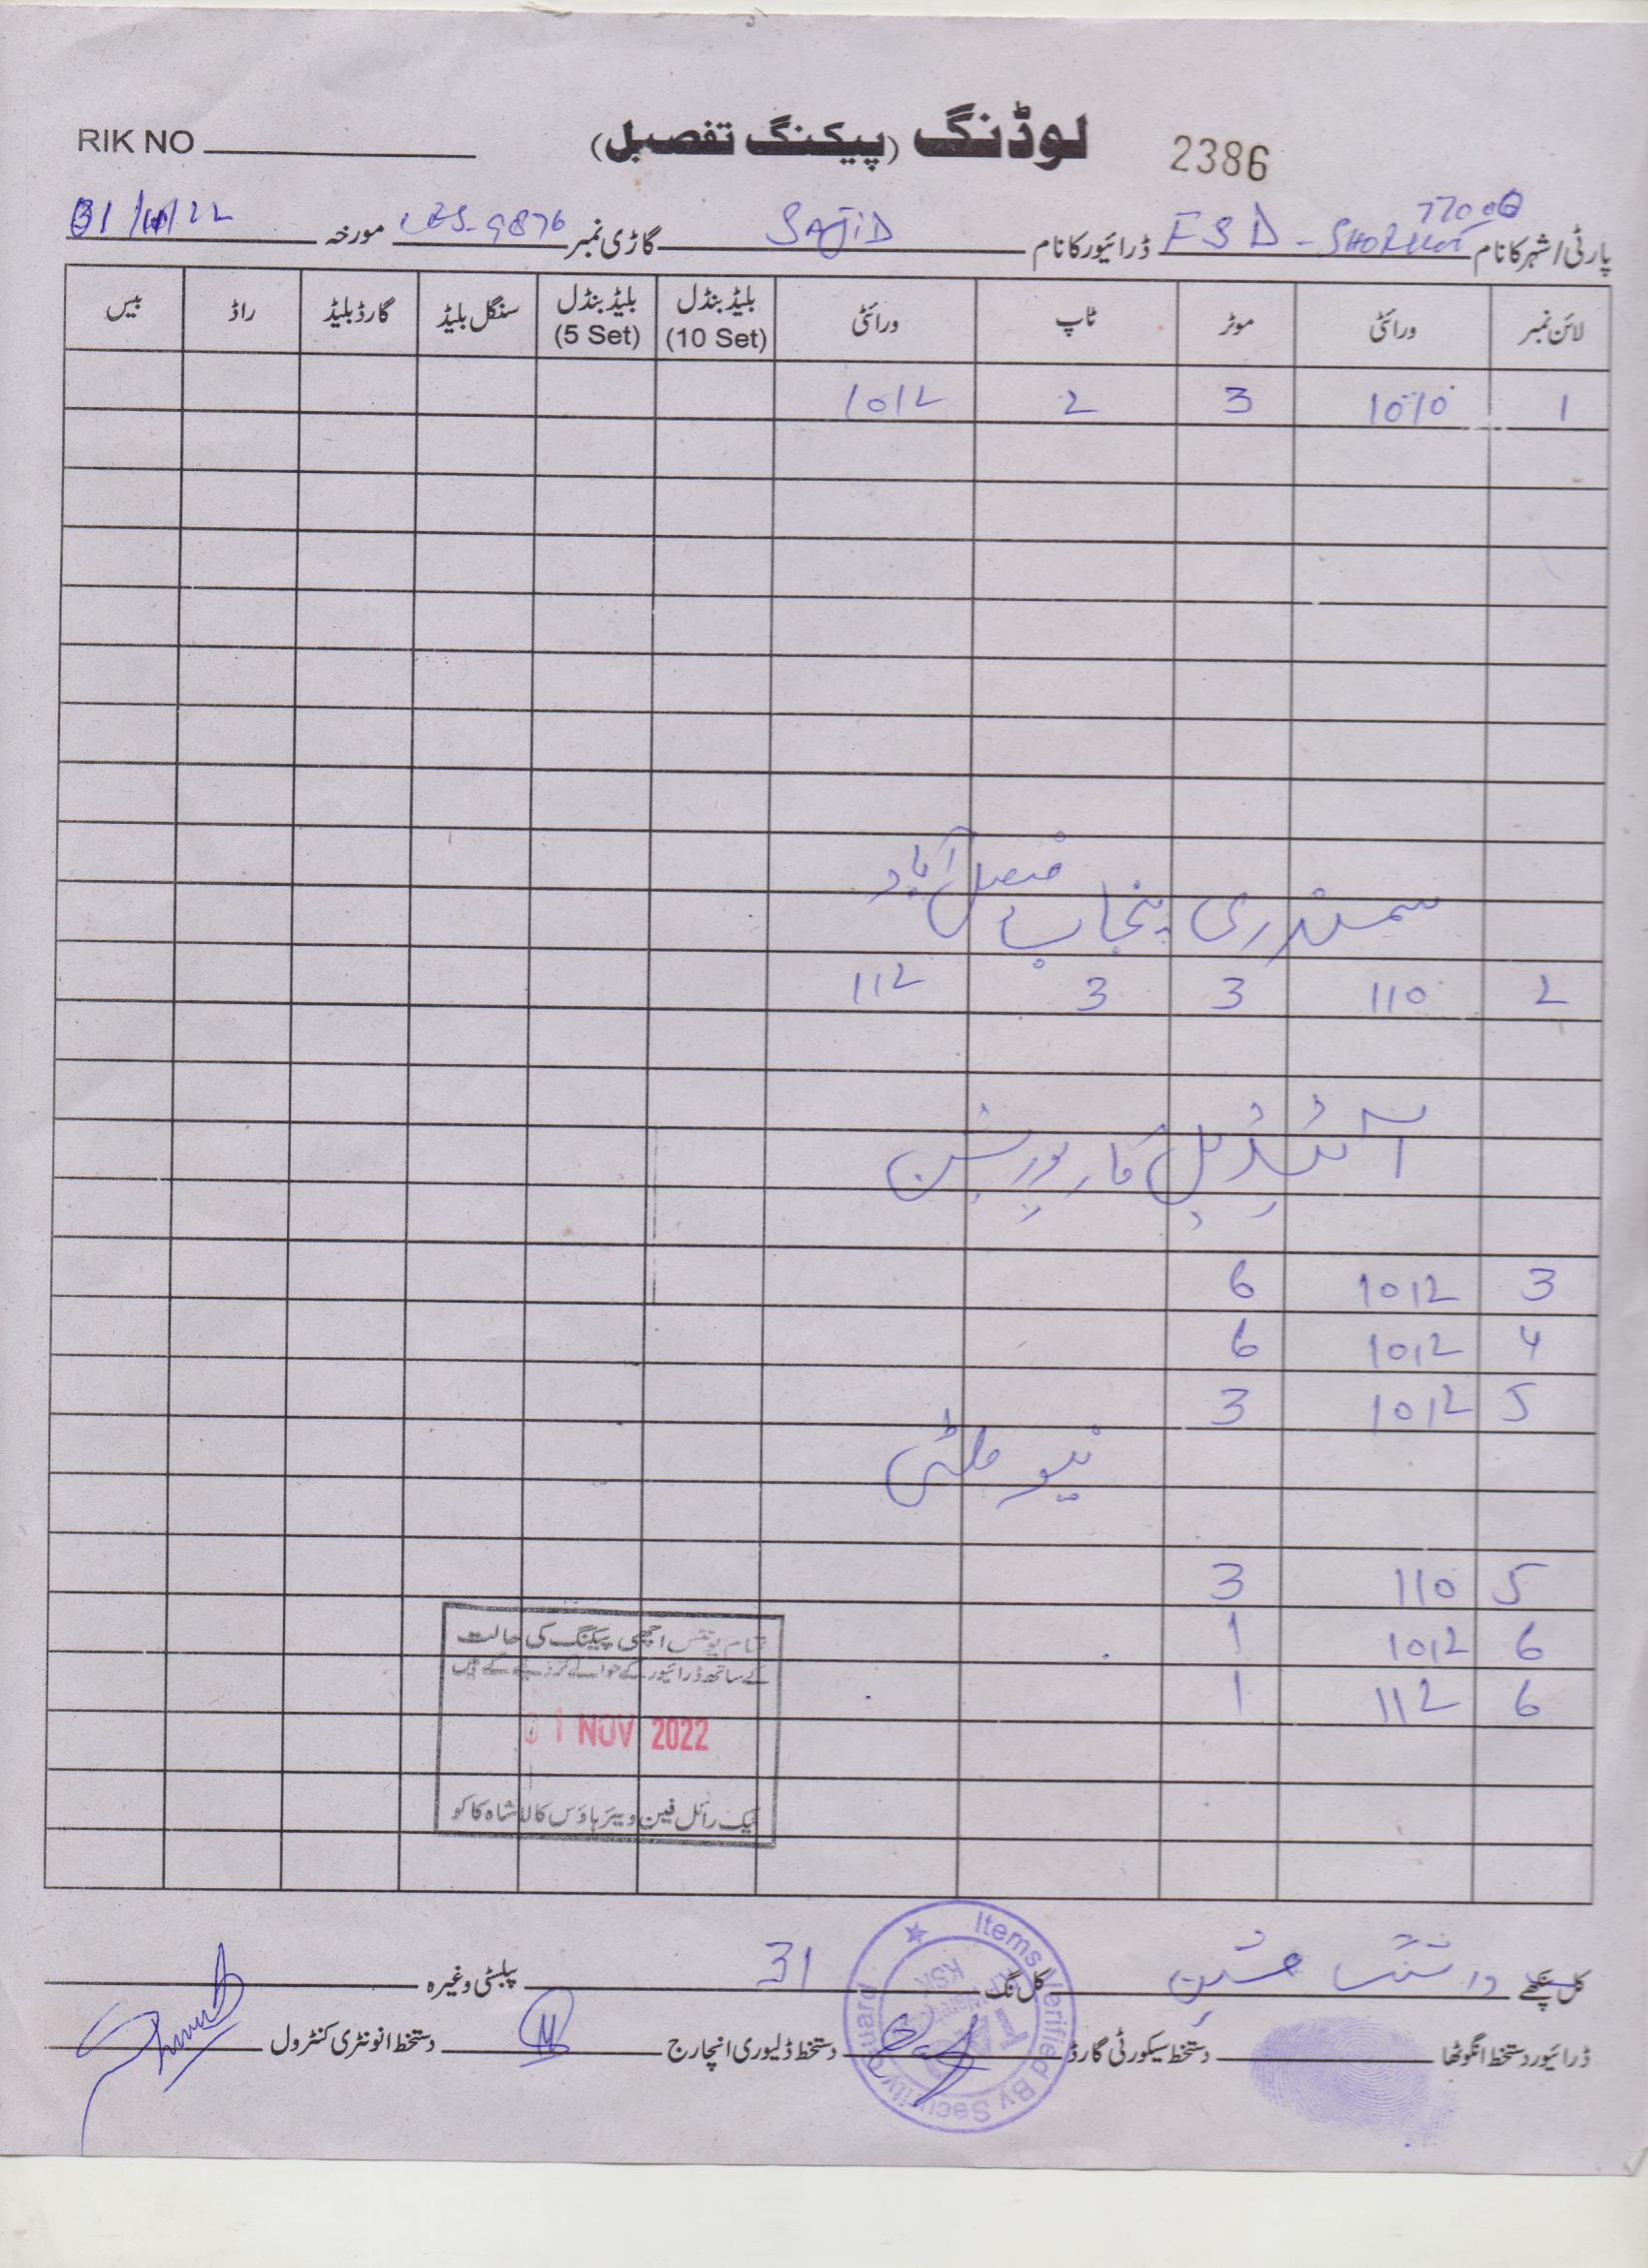 RIK NO
لوڈنگ (پیکنگ تفصیل)
2386
77000
پارٹی/شہر کا نام FSD - SHORKOT ڈرائیور کا نام SAJID گاڑی نمبر LES-9876 مورخہ 01/11/22
لائن نمبر ورائٹی موٹر ٹاپ ورائٹی بلیڈ بنڈل (10 Set) بلیڈ بنڈل (5 Set) سنگل بلیڈ گارڈ بلیڈ راڈ بیس
1 1010 3 2 1012
سمندری پنجاب فیصل آباد
2 110 3 3 112
آئیڈیل کارپوریشن
3 1012 6
4 1012 6
5 1012 3
نیو ملٹی
5 110 3
6 1012 1
6 112 1
تمام یونٹس اچھی پیکنگ کی حالت
کے ساتھ ڈرائیور کے حوالے کر دیئے گئے ہیں
01 NOV 2022
ٹیک رائل فین ویئر ہاؤس کالا شاہ کاکو
کل پنکھے کل نگ 31 پلیٹی وغیرہ
Items Verified By Security Guard
KSK
ڈرائیور دستخط انگوٹھا دستخط سیکورٹی گارڈ دستخط ڈلیوری انچارج دستخط انونٹری کنٹرول